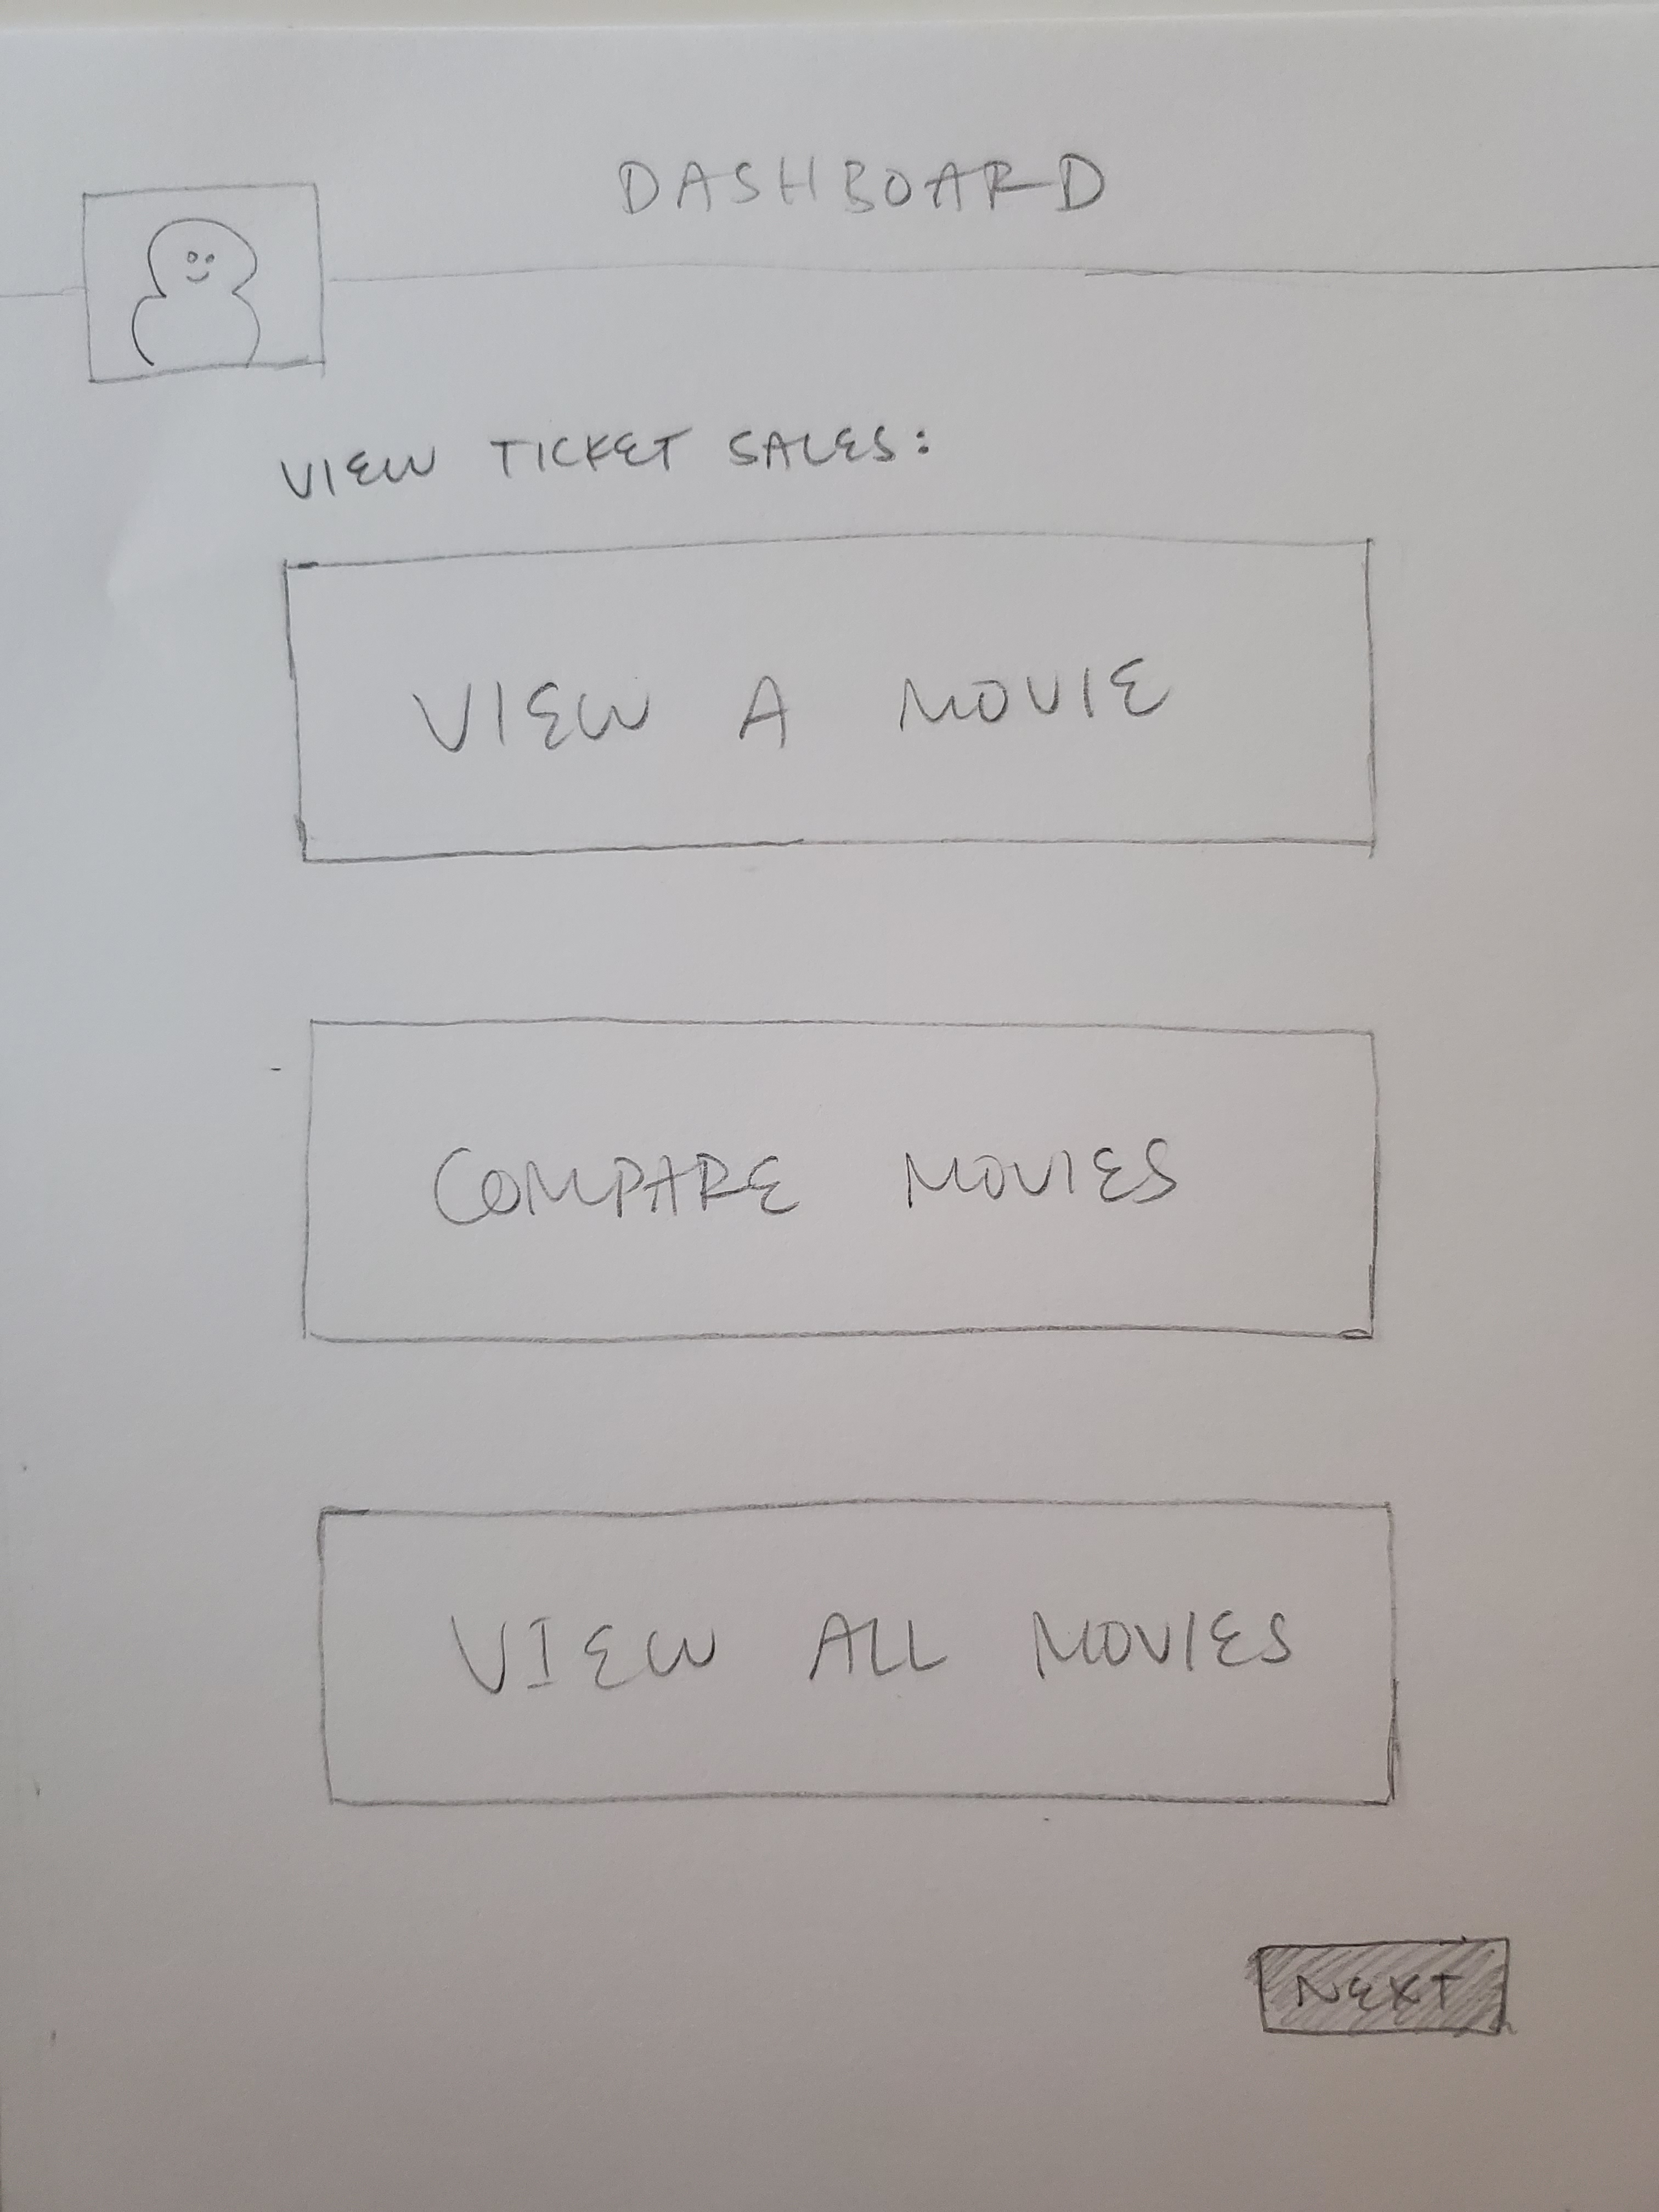 DASHBOARD
VIEW TICKET SALES:
VIEW A MOVIE
COMPARE MOVIES
VIEW ALL MOVIES
NEXT